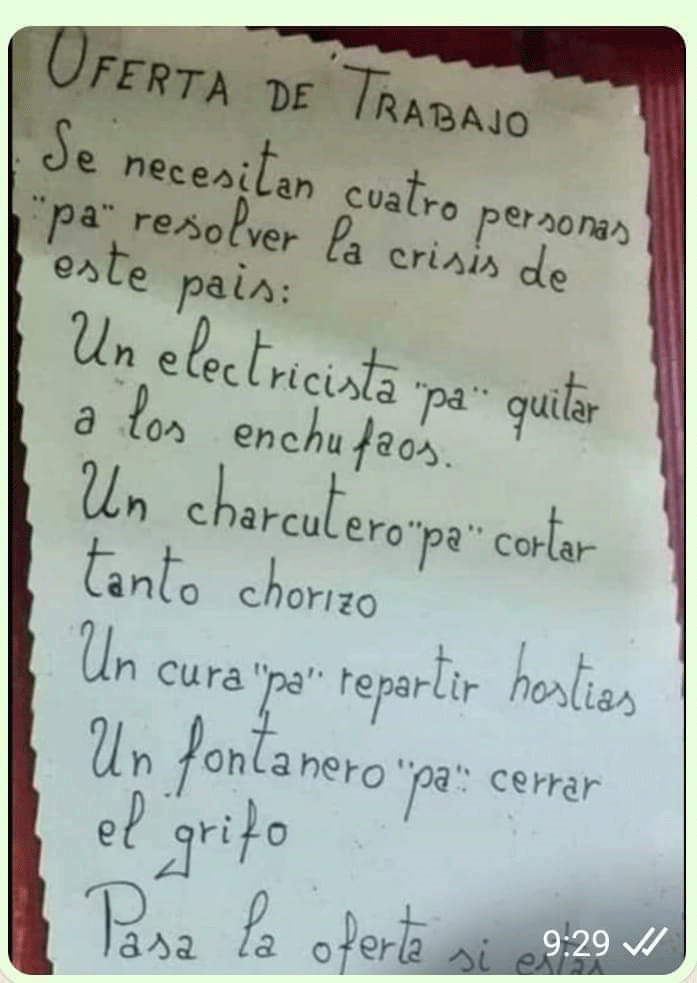 OFERTA DE TRABAJO
Se necesitan cuatro personas
"pa" resolver la crisis de
este pais:
Un electricista "pa" quitar
a los enchufaos.
Un charcutero "pa" cortar
tanto chorizo
Un cura "pa" repartir hostias
Un fontanero "pa" cerrar
el grifo
Pasa la oferta si estas
9:29